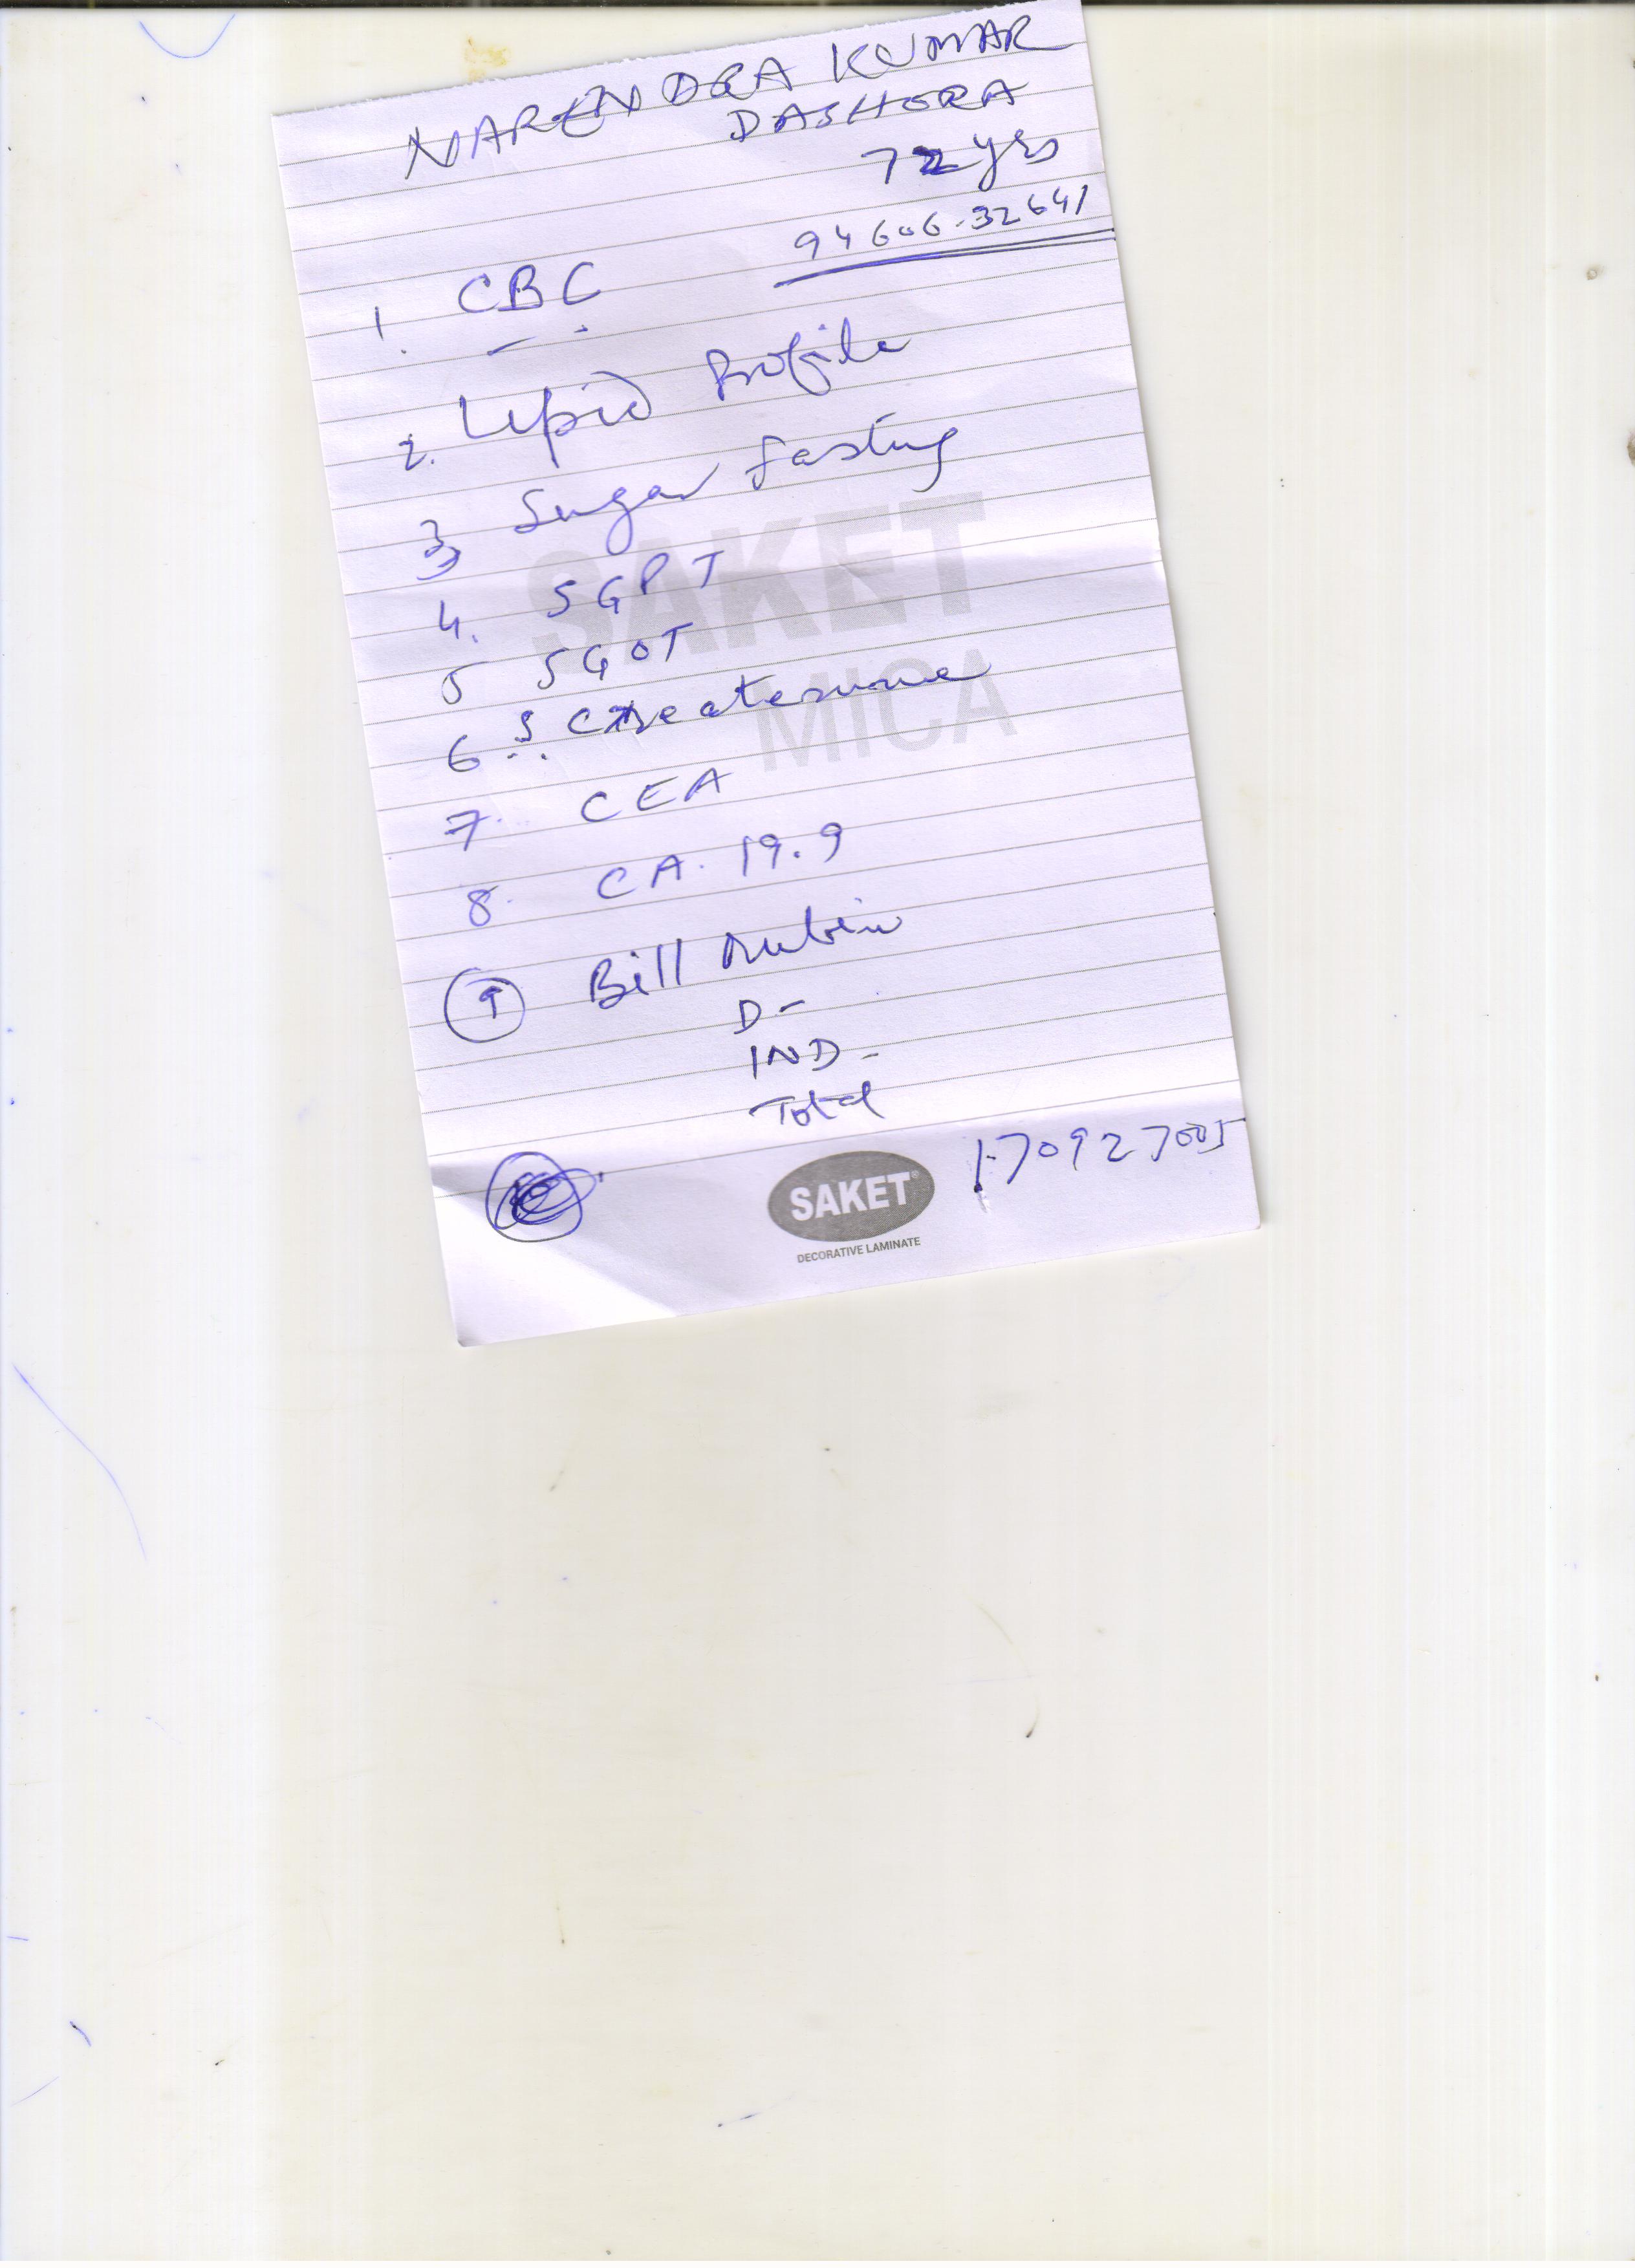 NARENDRA KUMAR
DASHORA
72 yrs
94606-32641
1. CBC
2. Lipid Profile
3, Sugar fasting
4. SGPT
5 SGOT
6 S. Createnine
7. CEA
8. CA. 19.9
9 Bill rubin
D-
IND-
Total
170927005
SAKET
MICA
SAKET®
DECORATIVE LAMINATE